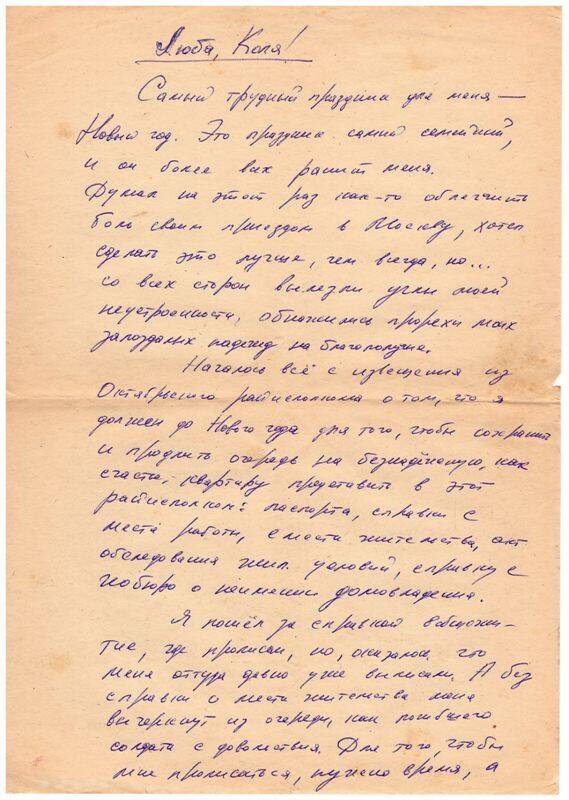 Люба, Коля!
Самый трудный праздник для меня —
Новый год. Это праздник самый семейный,
и он более всех ранит меня.
Думал на этот раз как-то облегчить
боль своим приездом в Москву, хотел
сделать это лучше, чем всегда, но...
со всех сторон вылезли углы моей
неустроенности, обнажились прорехи моих
запоздалых надежд на благополучие.
Началось всё с извещения из
Октябрьского райисполкома о том, что я
должен до Нового года для того, чтобы сохранить
и продлить очередь на безнадёжную, как
счастье, квартиру представить в этот
райисполком: паспорта, справки с
места работы, с места жительства, акт
обследования жил. условий, справку с
жобюро о неимении домовладения.
Я пошёл за справкой в общежи-
тие, где прописан, но, оказалось что
меня оттуда давно уже выписали. А без
справки с места жительства меня
вычеркнут из очереди, как погибшего
солдата с довольствия. Для того, чтобы
мне прописаться, нужно время, а